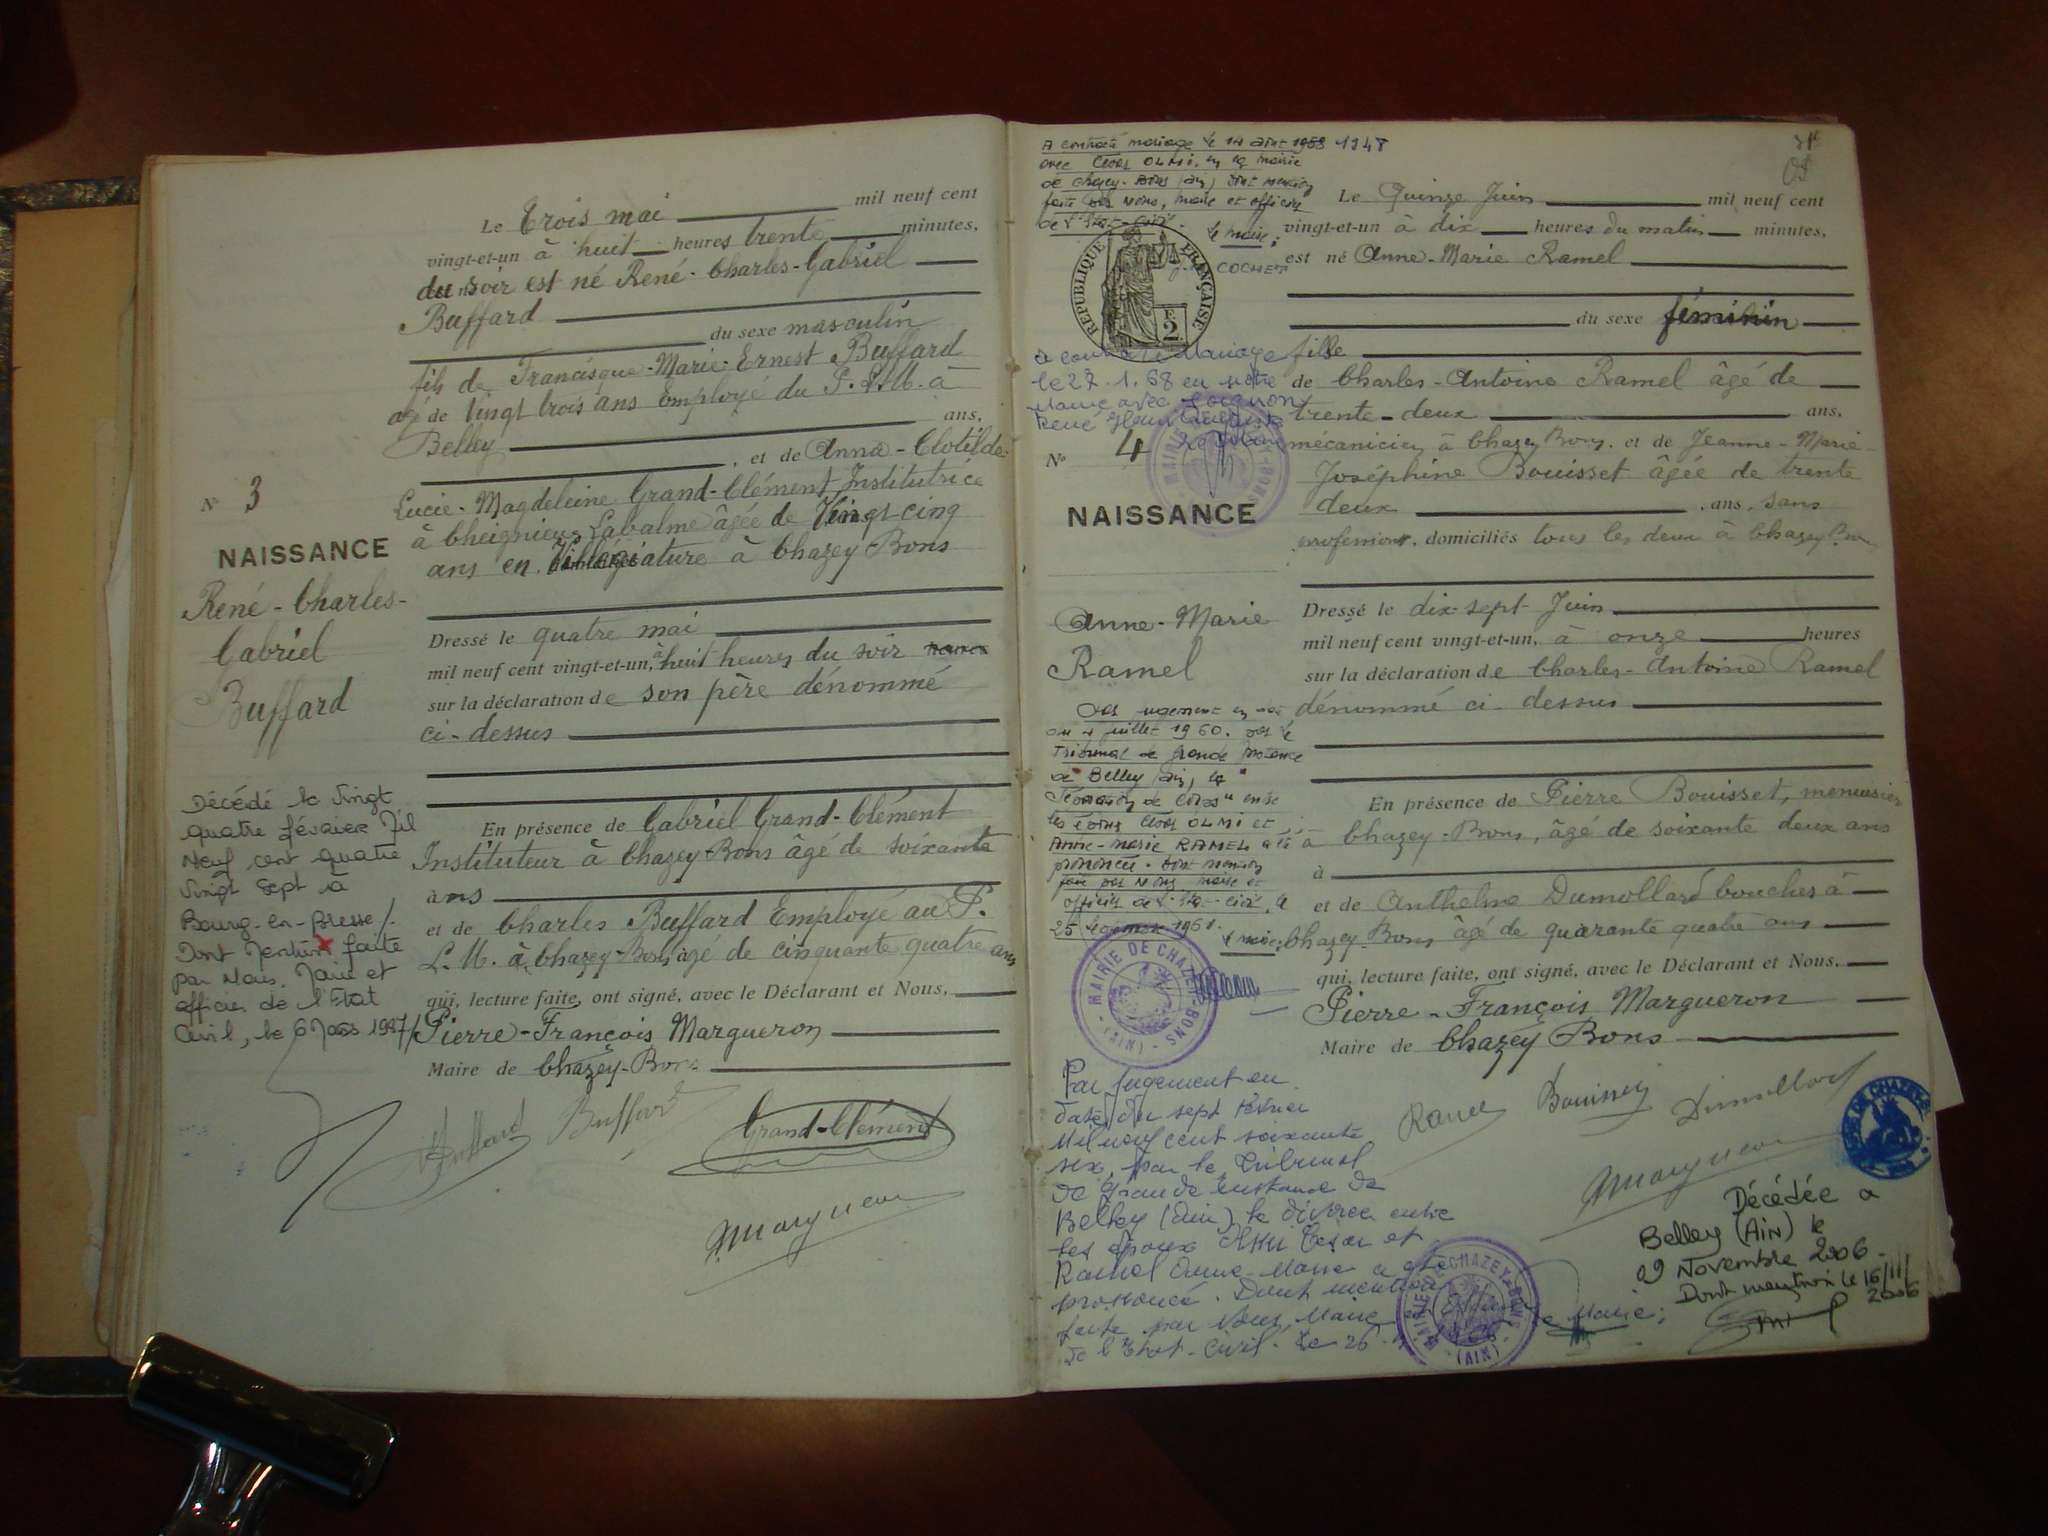 Le Trois mai mil neuf cent
vingt-et-un à huit heures trente minutes,
du soir est né René-Charles-Gabriel
Buffard
du sexe masculin
fils de Francisque-Marie-Ernest Buffard
agé de Vingt trois ans Employé du P.L.M. à
ans,
Belley
, et de Anna-Clotilde
Lucie-Magdeleine Grand-Clément Institutrice
à Cheignieu Labalme âgée de Vingt cinq
ans en Villégiature à Chazey Bons
N° 3
NAISSANCE
René-Charles-
Gabriel
Buffard
Dressé le quatre mai
mil neuf cent vingt-et-un, à huit heures du soir
sur la déclaration de son père dénommé
ci-dessus
En présence de Gabriel Grand-Clément
Instituteur à Chazey-Bons âgé de soixante
ans
et de Charles Buffard Employé au P.
L.M. à Chazey-Bons, agé de cinquante quatre ans
qui, lecture faite, ont signé, avec le Déclarant et Nous,
Pierre-François Margueron
Maire de Chazey-Bons
Décédé le Vingt
quatre février Mil
Neuf cent quatre
Vingt Sept à
Bourg-en-Bresse/.
Dont Mention faite
par Nous, Maire et
officier de l'Etat
Civil, le 6 Mars 1987/
Buffard Buffard
Grand-Clément
Margueron
A contracté mariage le 14 1958 1948
avec OLMI, en la mairie
de Chazey-Bons (Ain) dont mention
faite par Nous, maire et officier
de l'Etat-Civil.
le maire:
COCHET
RÉPUBLIQUE FRANÇAISE
2
Le Quinze Juin mil neuf cent
vingt-et-un à dix heures du matin minutes,
est né Anne-Marie Ramel
du sexe féminin
fille
de Charles-Antoine Ramel âgé de
trente-deux ans,
mécanicien à Chazey Bons, et de Jeanne-Marie-
Joséphine Bouisset âgée de trente
deux ans, sans
profession, domiciliés tous les deux à Chazey Bons
a contracté Mariage
le 27.1.68 en notre
Mairie avec
René
N° 4
NAISSANCE
Anne-Marie
Ramel
Dressé le dix-sept Juin
mil neuf cent vingt-et-un, à onze heures
sur la déclaration de Charles-Antoine Ramel
dénommé ci-dessus
En présence de Pierre Bouisset, menuisier
à Chazey-Bons, âgé de soixante deux ans
à
et de Anthelme Dumollard boucher à
Chazey Bons âgé de quarante quatre ans
qui, lecture faite, ont signé, avec le Déclarant et Nous,
Pierre-François Margueron
Maire de Chazey Bons
Par jugement en
du 4 juillet 1960. par le
Tribunal de Grande Instance
de Belley (Ain), la
de Corps" entre
les époux OLMI et
Anne-Marie RAMEL a été
prononcée. dont mention
faite par Nous maire et
officier de l'Etat-Civil, le
25 1961.
le maire:
MAIRIE DE CHAZEY-BONS (AIN)
Par jugement en
date du sept février
Mil neuf cent soixante
six, par le Tribunal
de Grande Instance de
Belley (Ain) le divorce entre
les époux Olmi César et
Ramel Anne-Marie a été
prononcé. Dont mention
faite par Nous, Maire
de l'Etat-Civil. Le 26
Le Maire:
MAIRIE DE CHAZEY-BONS (AIN)
Ramel Bouisset Dumollard
Margueron
Décédée à
Belley (AIN) le
09 Novembre 2006.
Dont mention le 16/11/
2006